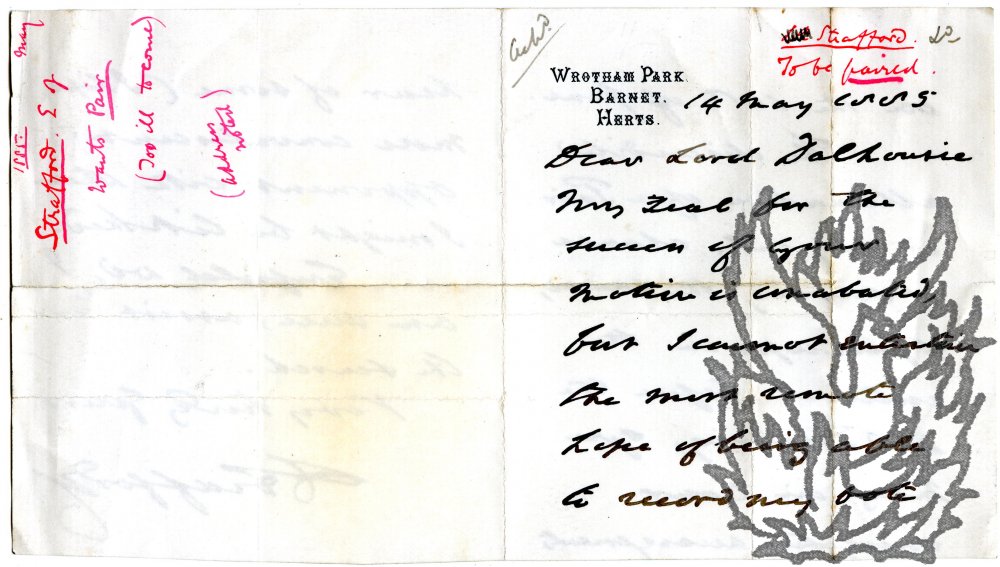 May
1885.
Strafford. E of
Wants Pair
(Too ill to come)
(address
noted)
Ackd.
Strafford.
To be paired.
WROTHAM PARK.
BARNET.
HERTS.
14 May 1885
Dear Lord Dalhousie
My zeal for the
success of your
motion is unabated,
but I cannot entertain
the most remote
hope of being able
to record my vote